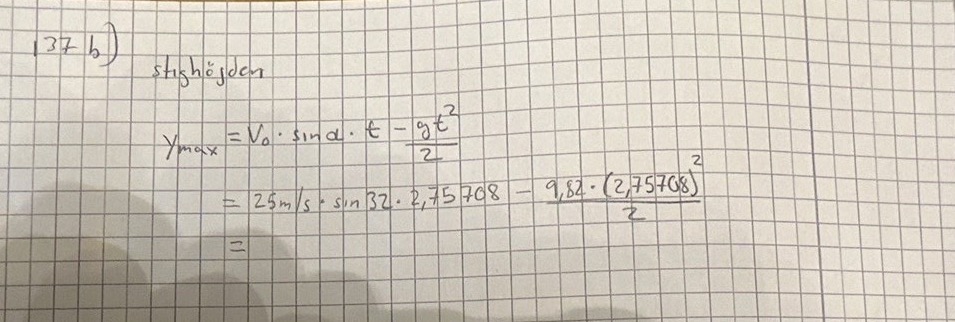 137 b)
stighöjden
y_max = V₀ · sin α · t − gt²/2
= 25m/s · sin 32 · 2,75708 − 9,82 · (2,75708)²/2
=